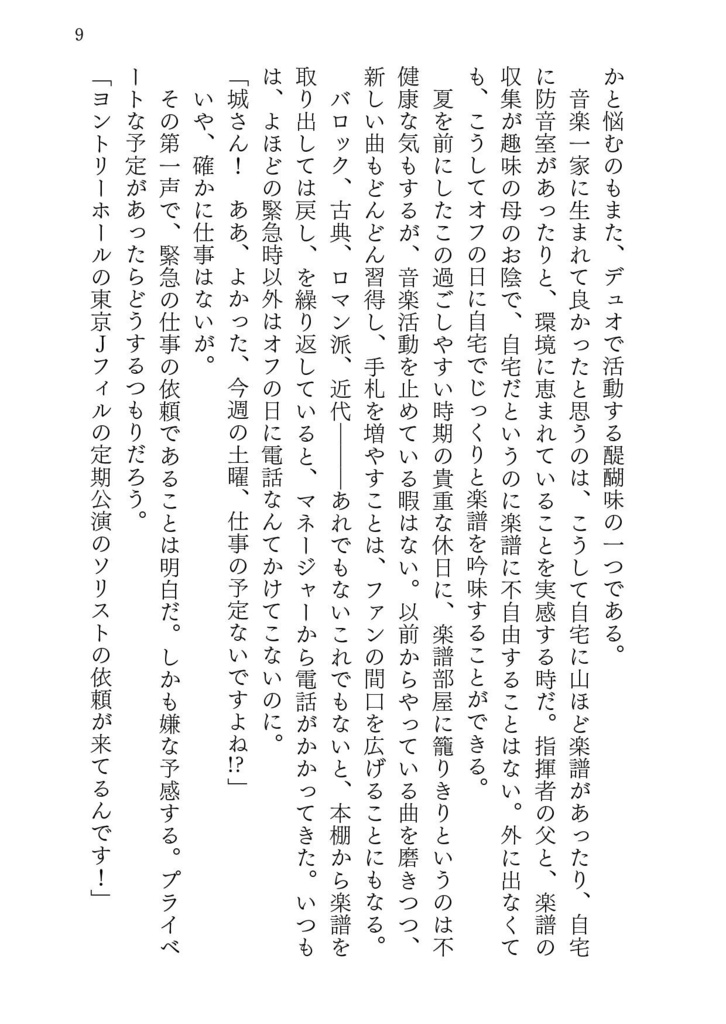 9
かと悩むのもまた、デュオで活動する醍醐味の一つである。
　音楽一家に生まれて良かったと思うのは、こうして自宅に山ほど楽譜があったり、自宅
に防音室があったりと、環境に恵まれていることを実感する時だ。指揮者の父と、楽譜の
収集が趣味の母のお陰で、自宅だというのに楽譜に不自由することはない。外に出なくて
も、こうしてオフの日に自宅でじっくりと楽譜を吟味することができる。
　夏を前にしたこの過ごしやすい時期の貴重な休日に、楽譜部屋に籠りきりというのは不
健康な気もするが、音楽活動を止めている暇はない。以前からやっている曲を磨きつつ、
新しい曲もどんどん習得し、手札を増やすことは、ファンの間口を広げることにもなる。
　バロック、古典、ロマン派、近代――あれでもないこれでもないと、本棚から楽譜を
取り出しては戻し、を繰り返していると、マネージャーから電話がかかってきた。いつも
は、よほどの緊急時以外はオフの日に電話なんてかけてこないのに。
「城さん！　ああ、よかった、今週の土曜、仕事の予定ないですよね!?」
　いや、確かに仕事はないが。
　その第一声で、緊急の仕事の依頼であることは明白だ。しかも嫌な予感する。プライベ
ートな予定があったらどうするつもりだろう。
「ヨントリーホールの東京Ｊフィルの定期公演のソリストの依頼が来てるんです！」